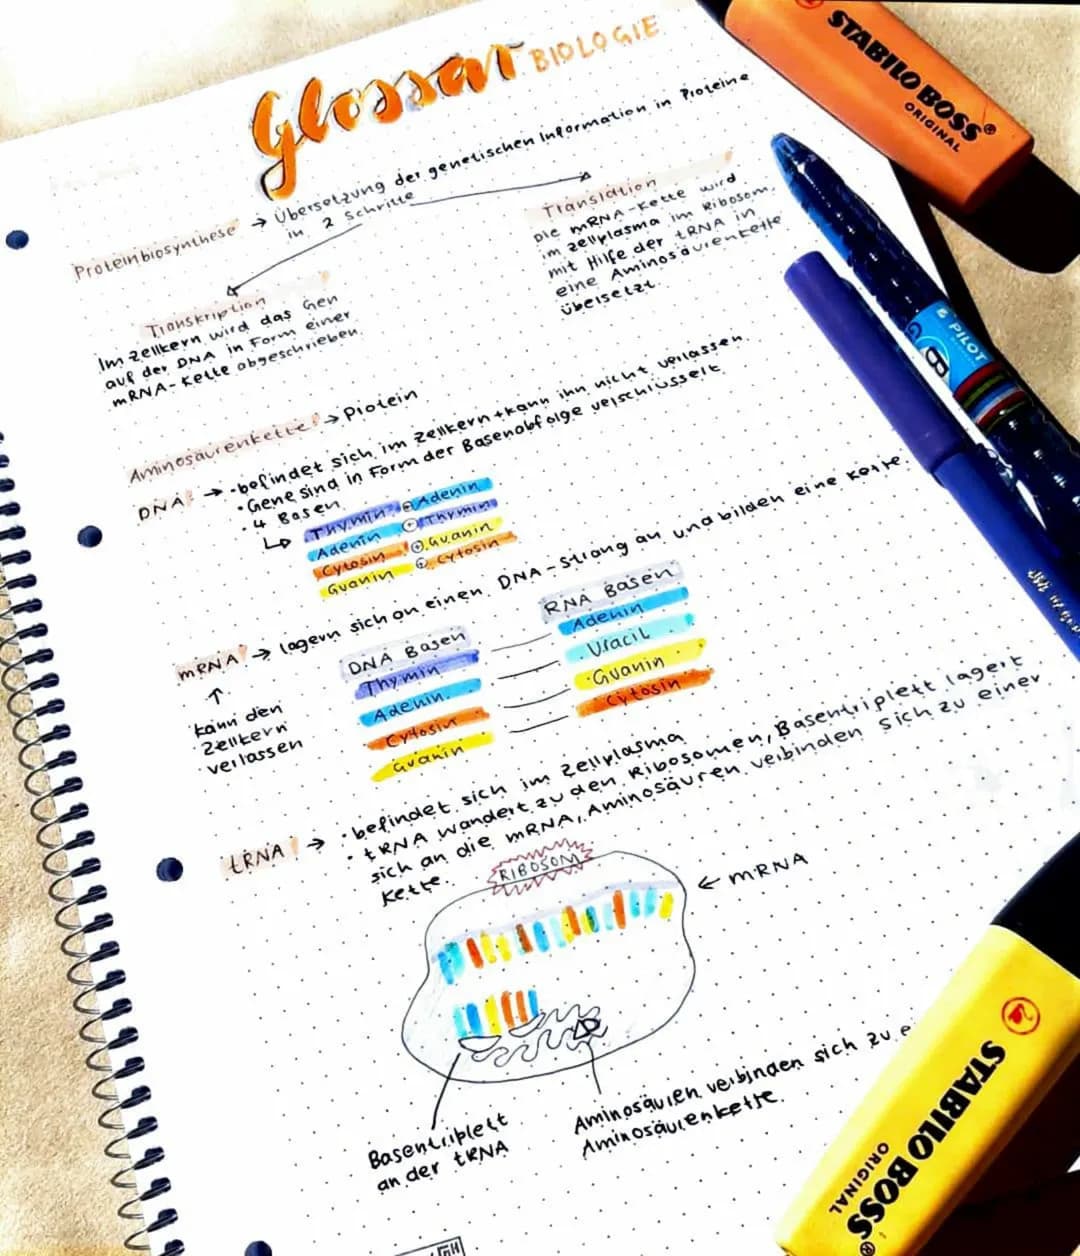 Glossar BIOLOGIE
Proteinbiosynthese → Übersetzung der genetischen Information in Proteine
in 2 Schritte
Transkription
Im Zellkern wird das Gen
auf der DNA in Form einer
mRNA-Kette abgeschrieben
Translation
Die mRNA-Kette wird
im Zellplasma im Ribosom
mit Hilfe der tRNA in
eine Aminosäurenkette
übersetzt.
Aminosäurenkette → Protein
DNA → · befindet sich im Zellkern + kann ihn nicht verlassen
· Gene sind in Form der Basenabfolge verschlüsselt
· 4 Basen
Thymin + Adenin
Adenin + Thymin
Cytosin + Guanin
Guanin + Cytosin
mRNA → lagern sich an einen DNA-Strang an und bilden eine Kette.
↑
kann den
Zellkern
verlassen
DNA Basen
Thymin
Adenin
Cytosin
Guanin
RNA Basen
Adenin
Uracil
Guanin
Cytosin
tRNA → · befindet sich im Zellplasma
· tRNA wandert zu den Ribosomen, Basentriplett lagert
sich an die mRNA, Aminosäuren verbinden sich zu einer
Kette.
RIBOSOM
← mRNA
Basentriplett
an der tRNA
Aminosäuren verbinden sich zu e
Aminosäurenkette
STABILO BOSS®
ORIGINAL
PILOT
STABILO BOSS®
ORIGINAL